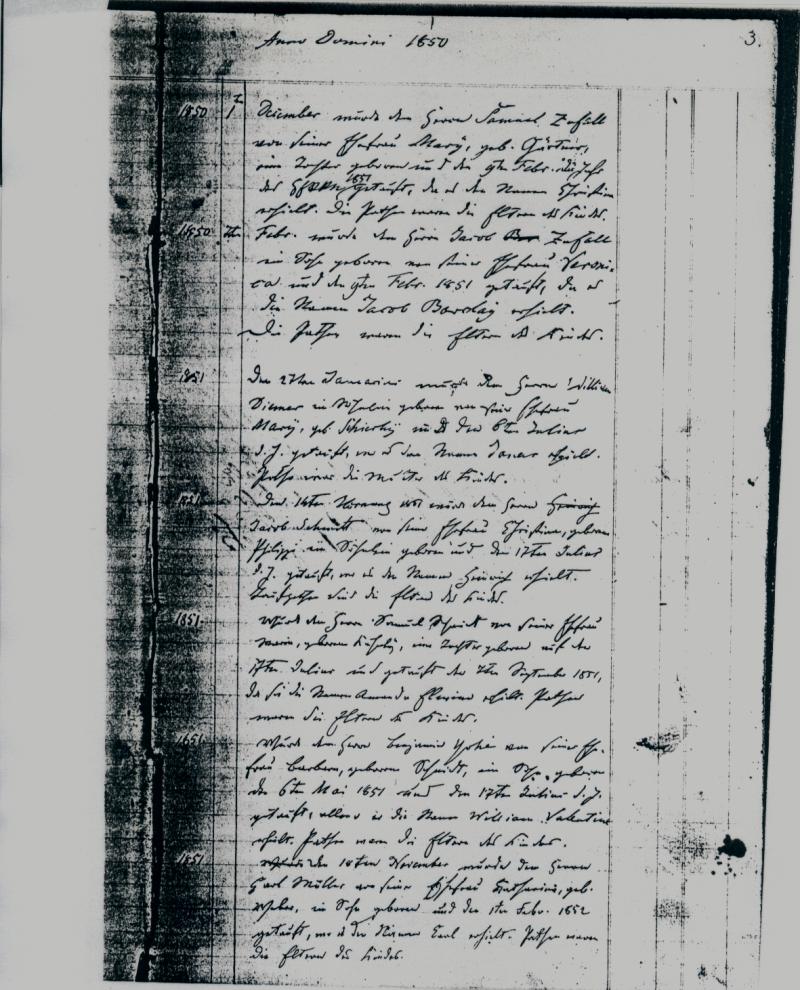 Anno Domini 1850
3.
1850 1 December wurde dem Herrn Samuel Zufall
von seiner Ehefrau Mary, geb. Gürtner,
eine Tochter geboren und den 9ten Febr. des Jahrs
1851
des getauft, da es den Namen Christian
erhielt. Die Pathen waren die Eltern des Kindes.
1850 7ten Febr. wurde dem Herrn Jacob Zufall
ein Sohn geboren von seiner Ehefrau Veroni-
ca und den 9ten Febr. 1851 getauft, da es
die Namen Jacob Barclay erhielt.
Die Pathen waren die Eltern des Kindes.
1851 Den 27ten Januarii wurde dem Herrn William
Diemer ein Söhnlein geboren von seiner Ehefrau
Mary, geb. und den 6ten Julius
d. J. getauft, wo es den Namen erhielt.
Pathe war die Mutter des Kindes.
1851 Den 14ten Hornung 1851 wurde dem Herrn Heinrich
Jacob Schmitt von seiner Ehefrau Christine, geborne
Philippi ein Söhnlein geboren und den 17ten Julius
d. J. getauft, wo es den Namen Heinrich erhielt.
Taufpathen sind die Eltern des Kindes.
1851. Wurde dem Herrn Samuel Schmidt von seiner Ehefrau
Maria, geborene eine Tochter geboren auf den
17ten Julius und getauft den 7ten September 1851,
da sie die Namen Amanda erhielt. Pathen
waren die Eltern des Kindes.
1851 Wurde dem Herrn Benjamin von seiner Ehe-
frau Barbara, geborene Schmidt, ein Sohn geboren
den 6ten Mai 1851 und den 17ten Julius d. J.
getauft, allwo er die Namen William Valentine
erhielt. Pathen waren die Eltern des Kindes.
1851 Den 18ten November wurde dem Herrn
Carl Müller von seiner Ehefrau Katharina, geb.
Weber, ein Sohn geboren und den 1ten Febr. 1852
getauft, wo er den Namen Carl erhielt. Pathen waren
die Eltern des Kindes.